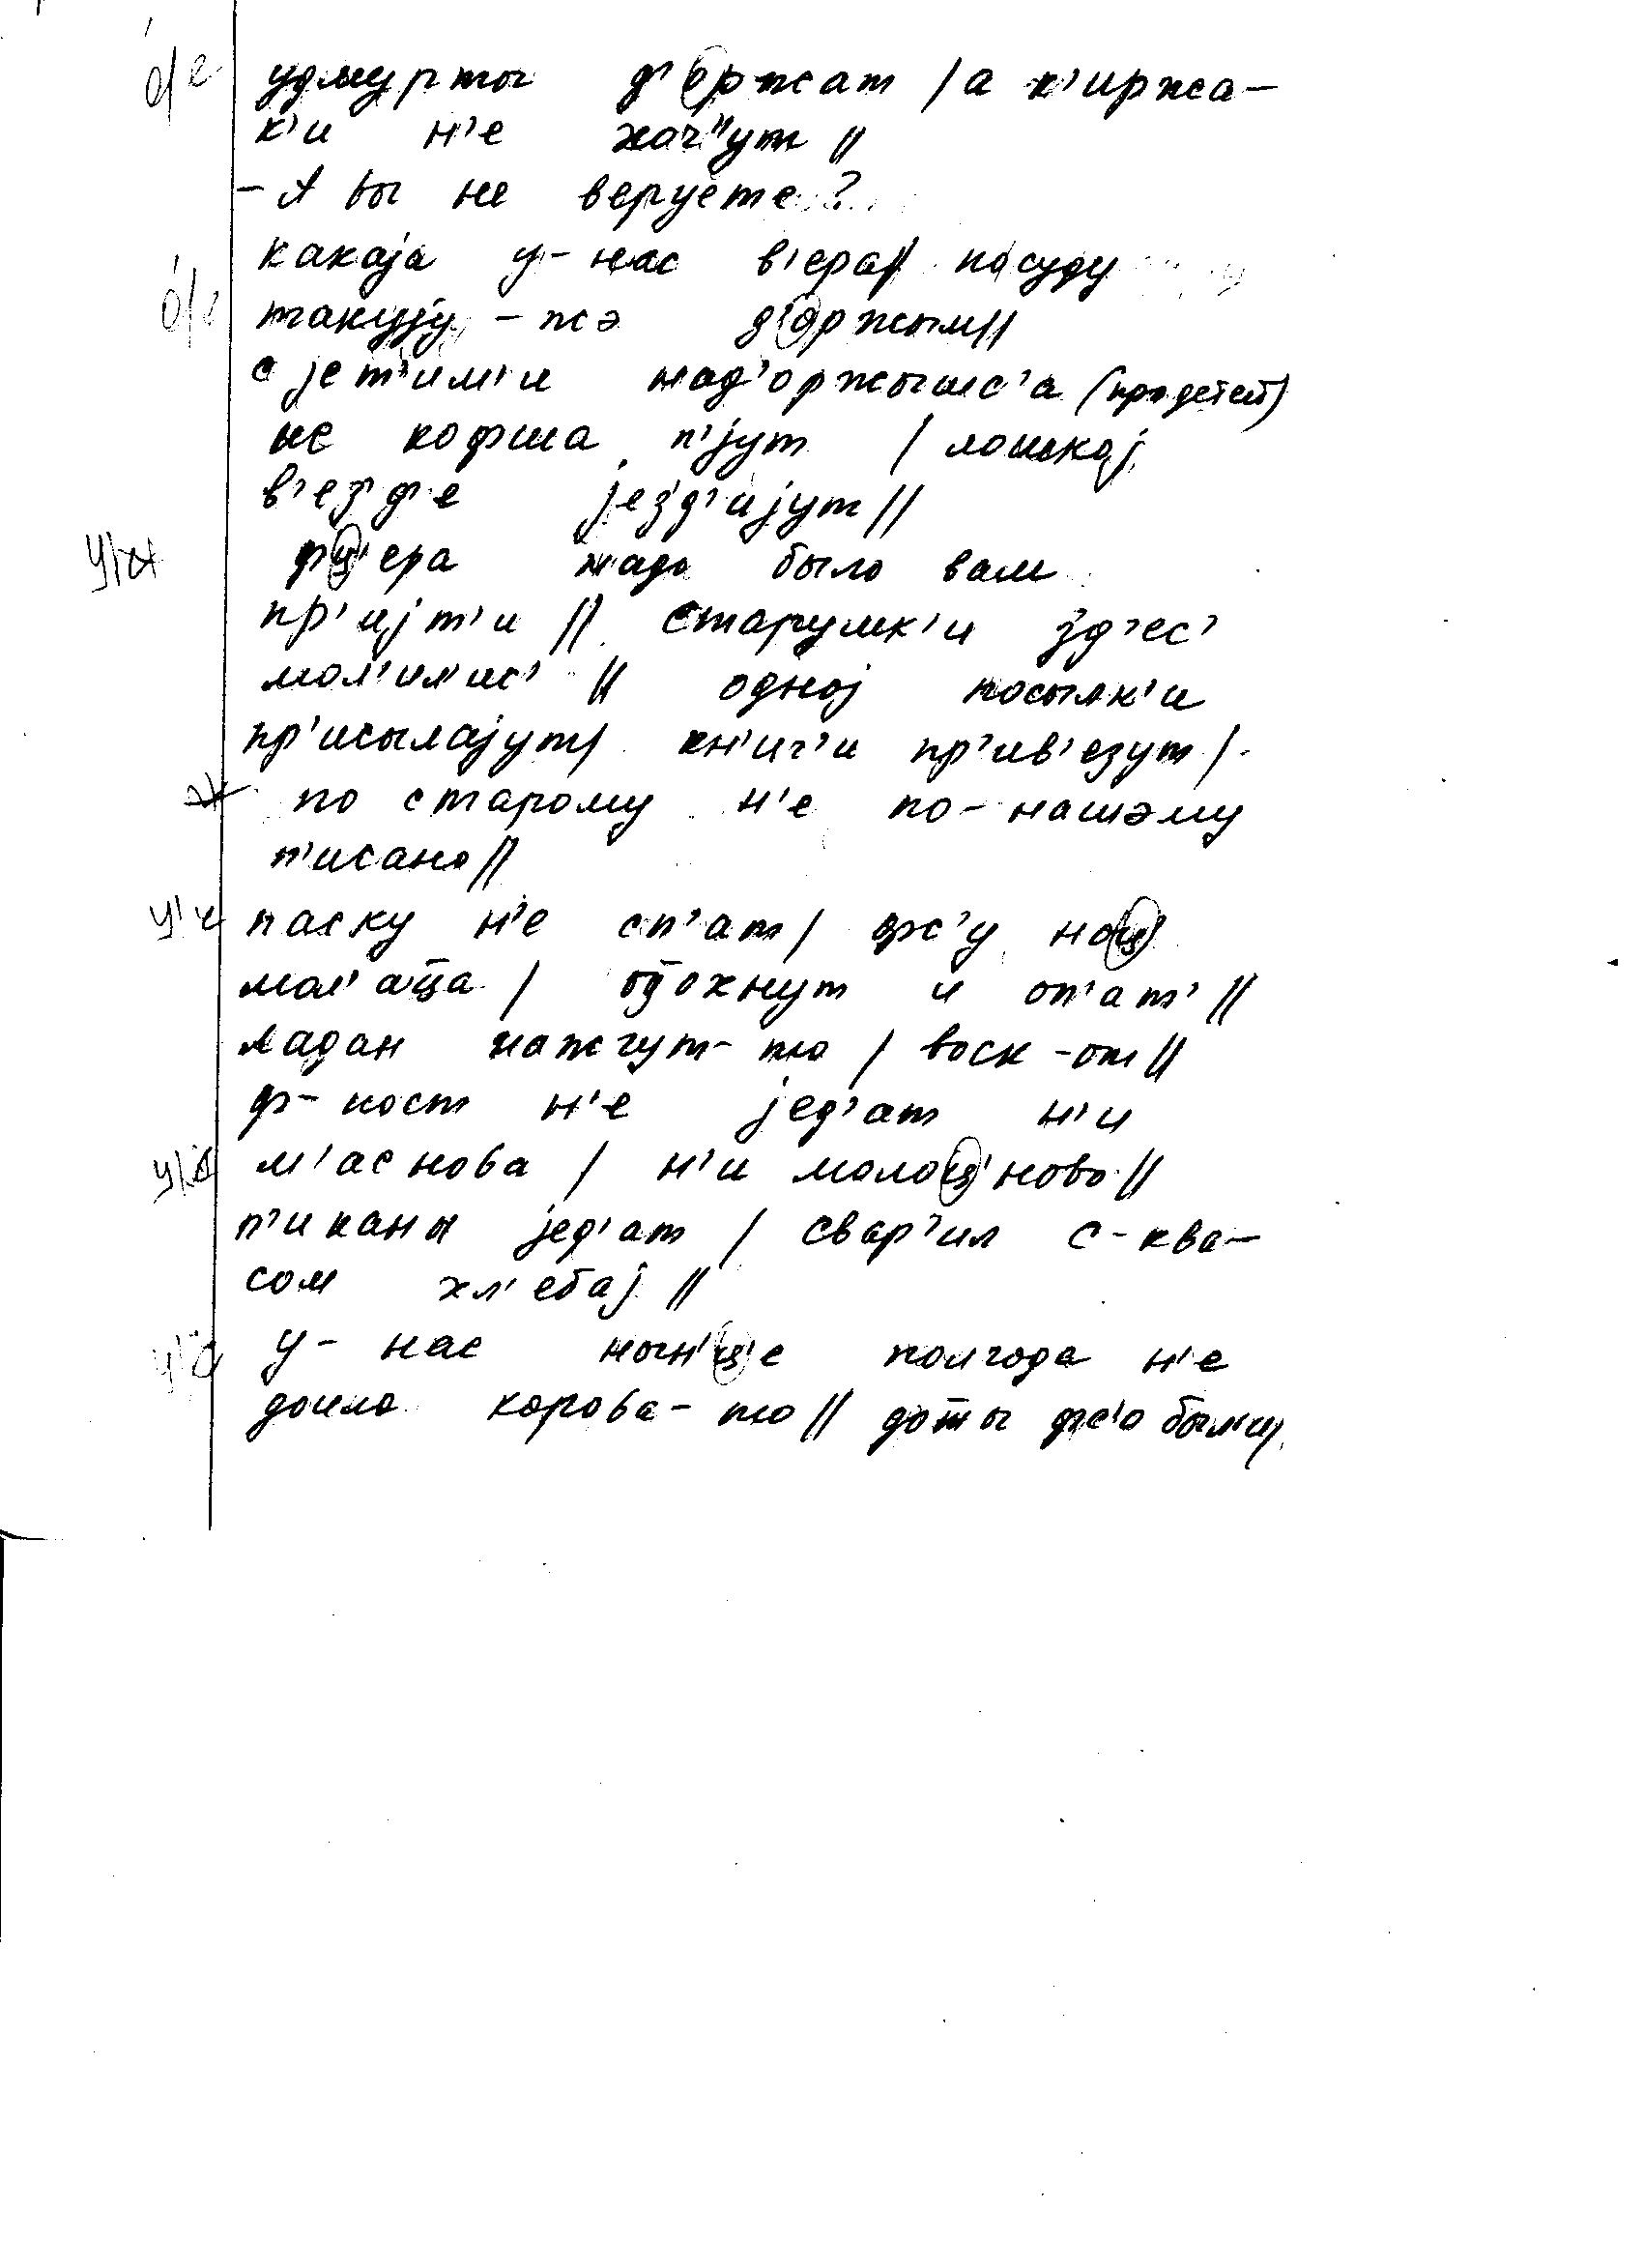 о́/е удмурты д'оржат / а к'иржа-
к'и н'е хоч'ут //
- А вы не веруете?
какаjа у-нас в'ера// посуду
о́/е такуjу - жэ д'оржым//
с jет'им'и над'оржышс'а (про детей)
не кофша п'jут / лошкоj
в'ез'д'е jез'д'иjут //
ц'/ч фц'ера надо было вам
пр'иjт'и // старушк'и зд'ес'
мол'ил'ис' // одноj посылк'и
пр'исылаjут/ кн'иг'и пр'ив'езут /
по старому н'е по-нашэму
п'исано //
ц'/ч паску н'е сп'ат / фс'у ноц'
мол'аца / одохнут и оп'ат' //
ладан нажгут-то / воск -от //
ф-пост н'е jед'ат н'и
ц'/ч м'аснова / н'и молоц'ново //
п'иканы jед'ат / свар'ил с-ква-
сом хл'ебаj //
ц'/ч у-нас нын'ц'е полгода н'е
доило корова-то // доты фс'о был'и/